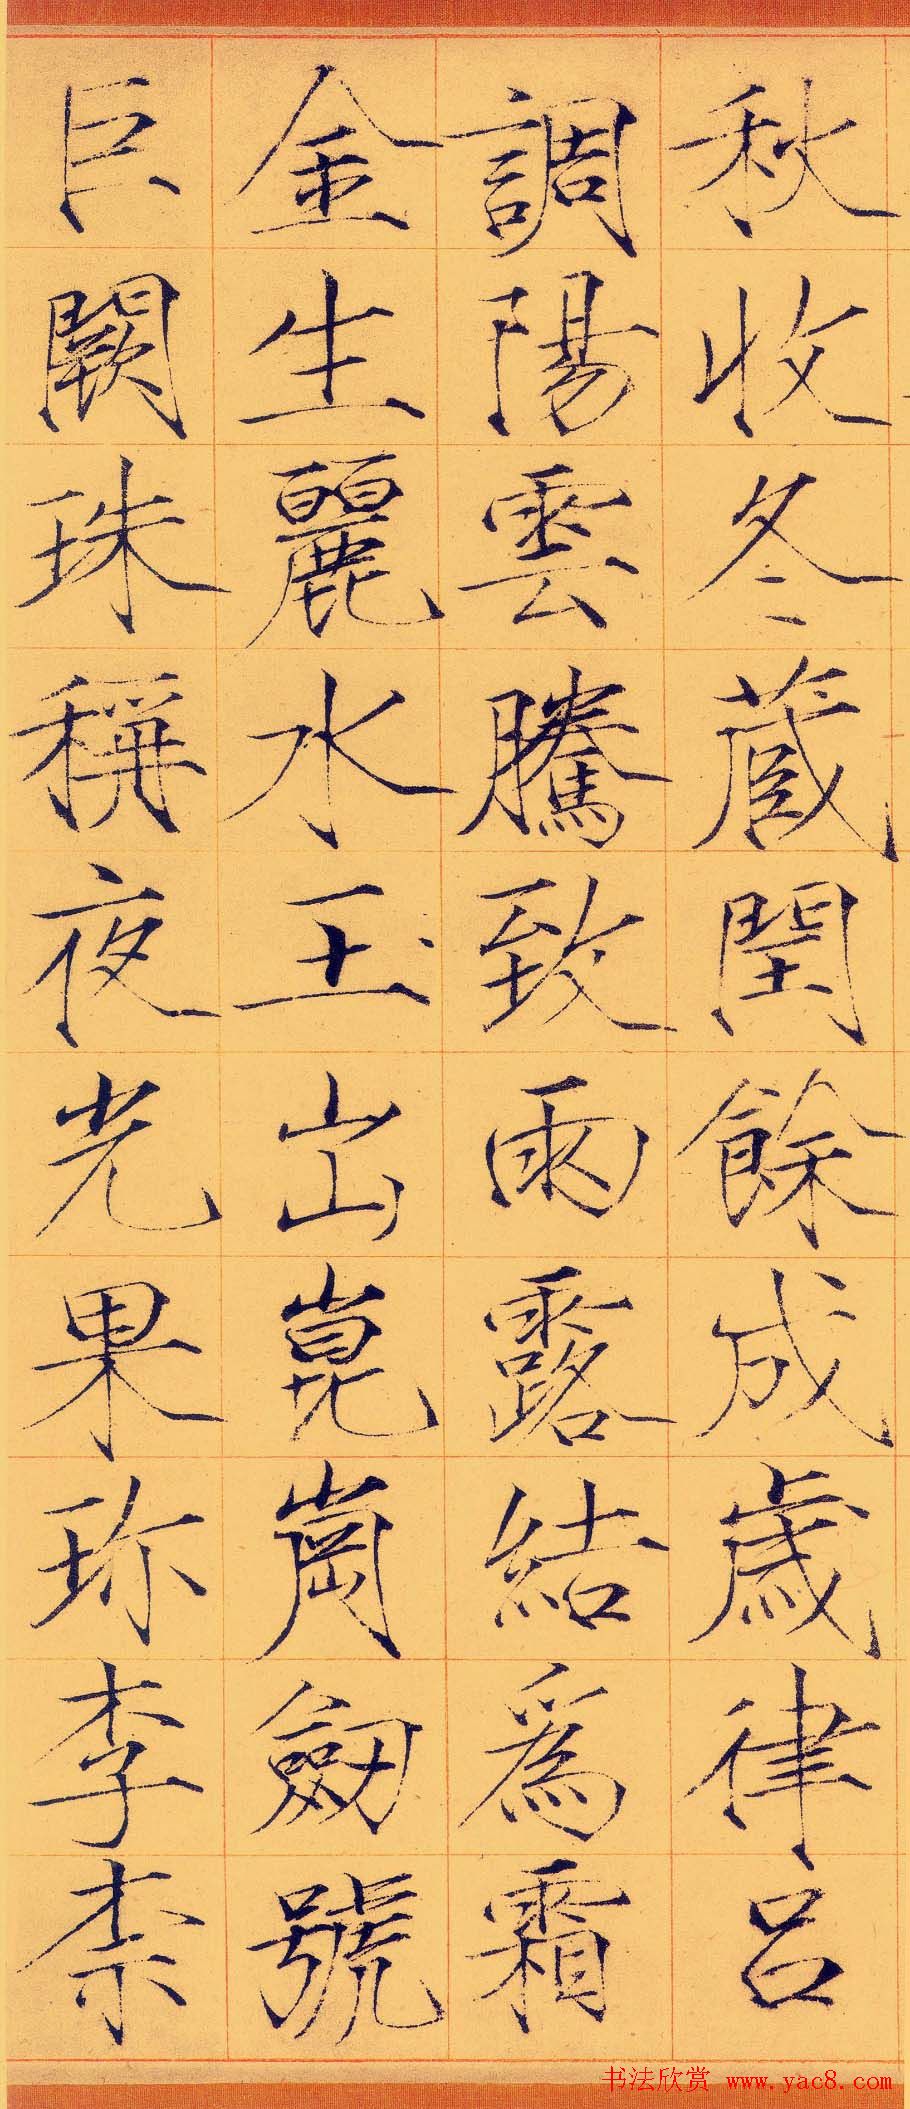 秋收冬蔵閏餘成歳律吕
調陽雲騰致雨露結爲霜
金生麗水玉出崑崗劒號
巨闕珠稱夜光果珎李柰
书法欣赏 www.yac8.com